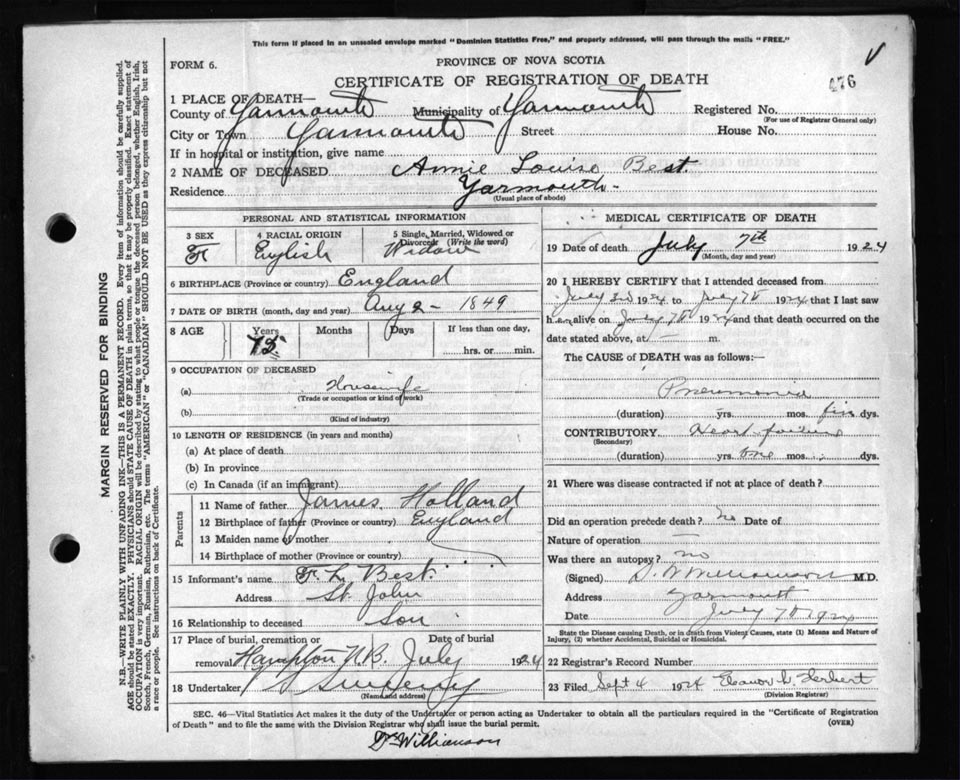 This form if placed in an unsealed envelope marked "Dominion Statistics Free," and properly addressed, will pass through the mails "FREE."
FORM 6.
PROVINCE OF NOVA SCOTIA
CERTIFICATE OF REGISTRATION OF DEATH
476
1 PLACE OF DEATH—
County of Yarmouth Municipality of Yarmouth Registered No.
(For use of Registrar General only)
City or Town Yarmouth Street House No.
If in hospital or institution, give name
2 NAME OF DECEASED Annie Louise Best
Residence Yarmouth
(Usual place of abode)
PERSONAL AND STATISTICAL INFORMATION
3 SEX 4 RACIAL ORIGIN 5 Single, Married, Widowed or Divorced (Write the word)
F English Widow
6 BIRTHPLACE (Province or country) England
7 DATE OF BIRTH (month, day and year) Aug 2 - 1849
8 AGE Years Months Days If less than one day,
75 hrs. or min.
9 OCCUPATION OF DECEASED
(a) Housewife
(Trade or occupation or kind of work)
(b)
(Kind of industry)
10 LENGTH OF RESIDENCE (in years and months)
(a) At place of death
(b) In province
(c) In Canada (if an immigrant)
Parents
11 Name of father James Holland
12 Birthplace of father (Province or country) England
13 Maiden name of mother
14 Birthplace of mother (Province or country)
15 Informant's name F. L. Best
Address St. John
16 Relationship to deceased Son
17 Place of burial, cremation or removal Hampton N.B. Date of burial July 1924
18 Undertaker Sweeny
(Name and address)
MEDICAL CERTIFICATE OF DEATH
19 Date of death July 7th 1924
(Month, day and year)
20 I HEREBY CERTIFY that I attended deceased from
July 3rd 1924 to July 7th 1924 that I last saw
her alive on July 7th 1924 and that death occurred on the
date stated above, at m.
The CAUSE of DEATH was as follows:—
Pneumonia
(duration) yrs. mos. five dys.
CONTRIBUTORY Heart failure
(Secondary)
(duration) yrs. one mos. dys.
21 Where was disease contracted if not at place of death?
Did an operation precede death? no Date of
Nature of operation —
Was there an autopsy? no
(Signed) Williamson M.D.
Address Yarmouth
Date July 7th 1924
State the Disease causing Death, or in death from Violent Causes, state (1) Means and Nature of
Injury, (2) whether Accidental, Suicidal or Homicidal.
22 Registrar's Record Number
23 Filed Sept 4 1924 Eleanor Herbert
(Division Registrar)
SEC. 46—Vital Statistics Act makes it the duty of the Undertaker or person acting as Undertaker to obtain all the particulars required in the "Certificate of Registration
of Death" and to file the same with the Division Registrar who shall issue the burial permit. (OVER)
Dr Williamson
MARGIN RESERVED FOR BINDING
N.B.—WRITE PLAINLY WITH UNFADING INK—THIS IS A PERMANENT RECORD. Every item of information should be carefully supplied.
AGE should be stated EXACTLY. PHYSICIANS should STATE CAUSE OF DEATH in plain terms, so that it may be properly classified. Exact statement of
OCCUPATION is very important. RACIAL ORIGIN will be described by stating to what people or tongue the deceased person belonged, whether English, Irish,
Scotch, French, German, Russian, Ruthenian, etc. The terms "AMERICAN" or "CANADIAN" SHOULD NOT BE USED as they express citizenship but not
a race or people. See instructions on back of Certificate.